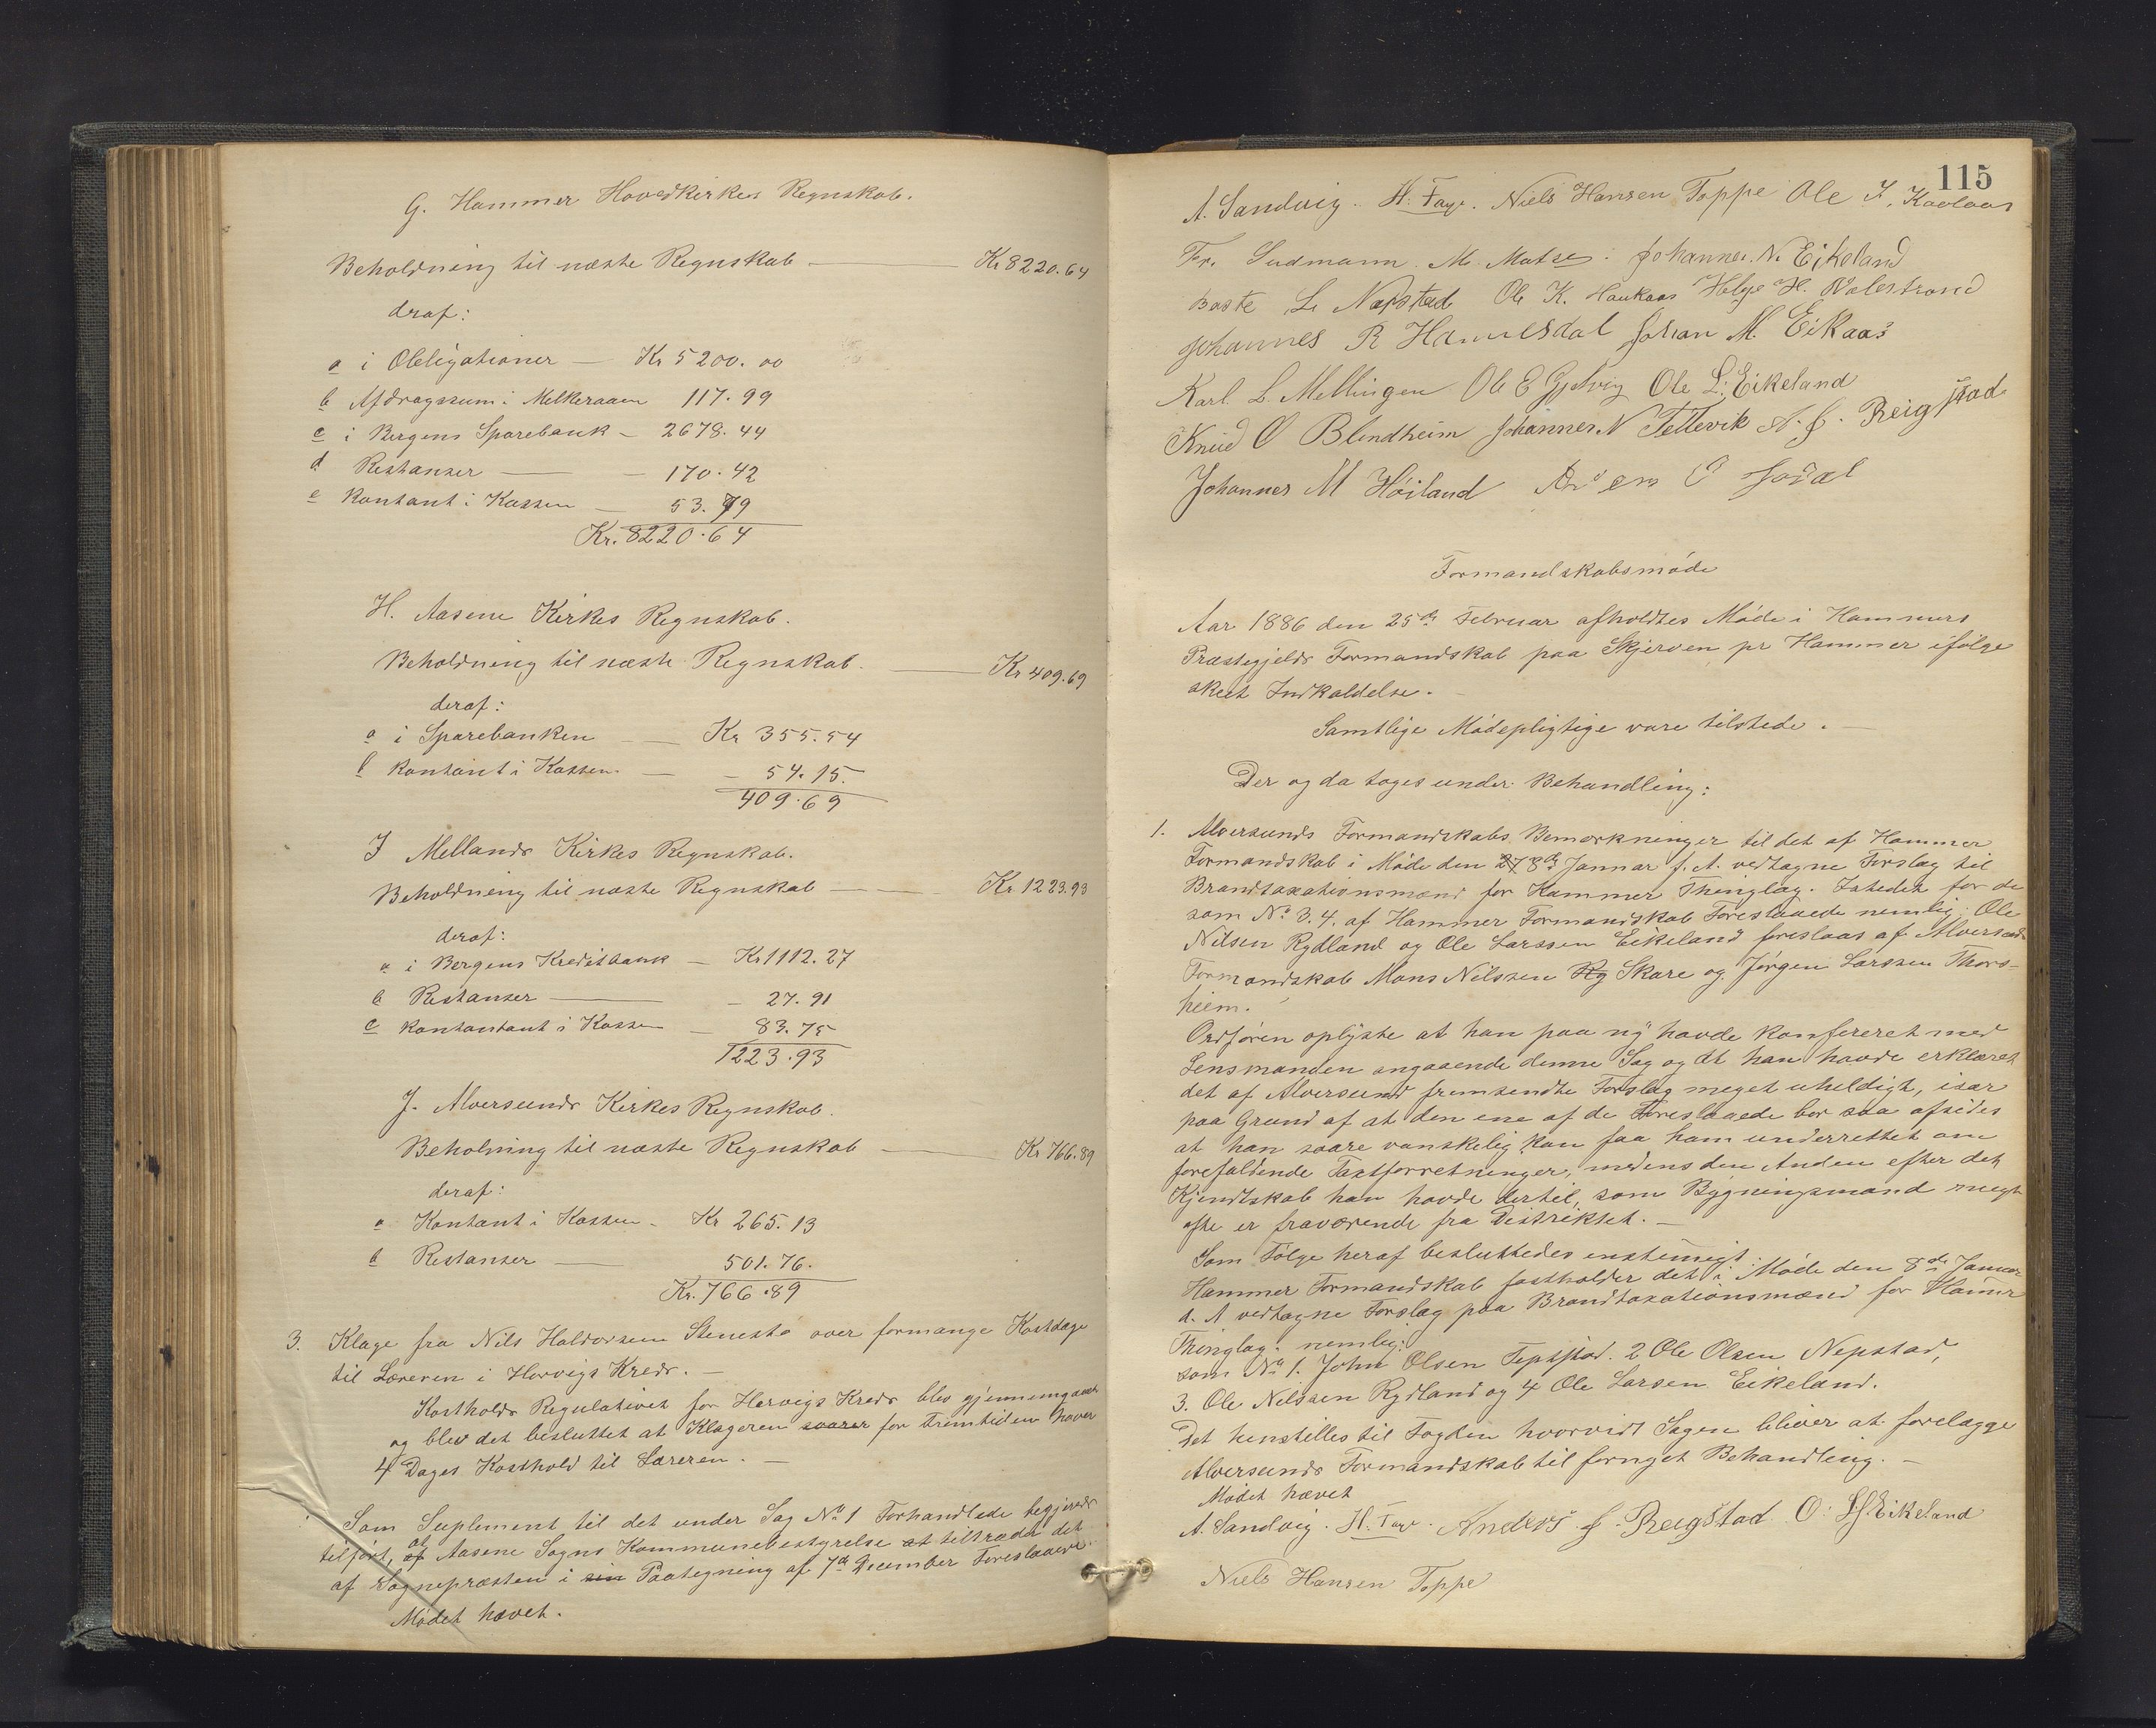 G. Hammer Hovedkirkes Regnskab.
Beholdning til næste Regnskab — Kr 8220.64
draf:
a i Obligationer — Kr 5200.00
b Afdragssum i Melkeraaen 117.99
c i Bergens Sparebank — 2678.44
d Restanser — 170.42
e Kontant i Kassen — 53.79
Kr. 8220.64
H. Aasene Kirkes Regnskab.
Beholdning til næste Regnskab. — Kr 409.69
deraf:
a i Sparebanken — Kr 355.54
b Kontant i Kassen — 54.15.
409.69
I Mellands Kirkes Regnskab.
Beholdning til næste Regnskab — Kr. 1223.93
deraf:
a i Bergens Kreditbank — Kr 1112.27
b Restanser — 27.91
c Kontantant i Kassen — 83.75
1223.93
J. Alversunds Kirkes Regnskab.
Beholning til næste Regnskab — Kr 766.89
deraf:
a Kontant i Kassen — Kr 265.13
b Restanser — 501.76.
Kr. 766.89
3. Klage fra Nils Haldorsen Stenestø over formange Kostdage
til Læreren i Horvigs Kreds. —
Kostholds Regulativet for Hervigs Kreds blev gjennemgaaet
og blev det besluttet at Klageren svarer for Fremtiden haver
4 Dages Kosthold til Læreren. —
Som Suplement til det under Sag No 1 Forhandlede begjæredes
tilført, af at Aasene Sogns Kommunebestyrelse at tiltræder det
af Sognepræsten i sin Paategning af 7de December Foreslaaede.
Mødet hævet.
115
A. Sandvig. H. Faye. Niels Hansen Toppe Ole J. Kaalaas
Fr. Sudmann. M. Matre. Johannes N. Eikeland
Baste L. Næpstad Ole K. Haukaas Helge H. Valestrand
Johannes R Hamnesdal Johan M. Eikaas
Karl L. Mellingen Ole E Gjelvig Ole L. Eikeland
Knud O Blindheim Johannes N Tellevik A. J. Reigstad
Johannes M Høiland O
Formandskabsmøde
Aar 1886 den 25de Februar afholdtes Møde i Hammers
Præstegjelds Formandskab paa Skjerven pr Hammer ifølge
skeet Indkaldelse. —
Samtlige Mødepligtige vare tilstede. —
Der og da toges under Behandling:
1. Alversunds Formandskabs Bemærkninger til det af Hammer
Formandskab i Møde den 27 8de Januar f. A. vedtagne Forslag til
Brandtaxationsmænd for Hammer Thinglag. Istedet for de
som No 3. 4. af Hammer Formandskab Foreslaaede nemlig: Ole
Nilsen Rydland og Ole Larssen Eikeland foreslaas af Alversunds
Formandskab Mons Nilssen Ry Skare og Jørgen Larssen Thors-
heim.
Ordføren oplyste at han paa ny havde konfereret med
Lensmanden angaaende denne Sag og at han havde erklæret
det af Alversund fremsendte Forslag meget uheldigt, især
paa Grund af at den ene af de Foreslaaede bor saa afsides
at han saare vanskelig kan faa ham underrettet om
forefaldende Taxtforretninger, medens den Anden efter det
Kjendskab han havde dertil, som Bygningsmand meget
ofte er fraværende fra Distriktet. —
Som Følge heraf besluttedes enstemigt:
Hammer Formandskab fastholder det i Møde den 8de Januar
d. A vedtagne Forslag paa Brandtaxationsmænd for Hamer
Thinglag nemlig:
som No 1. John Olsen Tepstad. 2 Ole Olsen Nepstad,
3. Ole Nilssen Rydland og 4 Ole Larsen Eikeland.
Det henstilles til Fogden hvorvidt Sagen bliver at forelægge
Alversunds Formandskab til fornyet Behandling. —
Mødet hævet
A. Sandvig. H. Faye. Anders J. Reigstad O. L. Eikeland
Niels Hansen Toppe